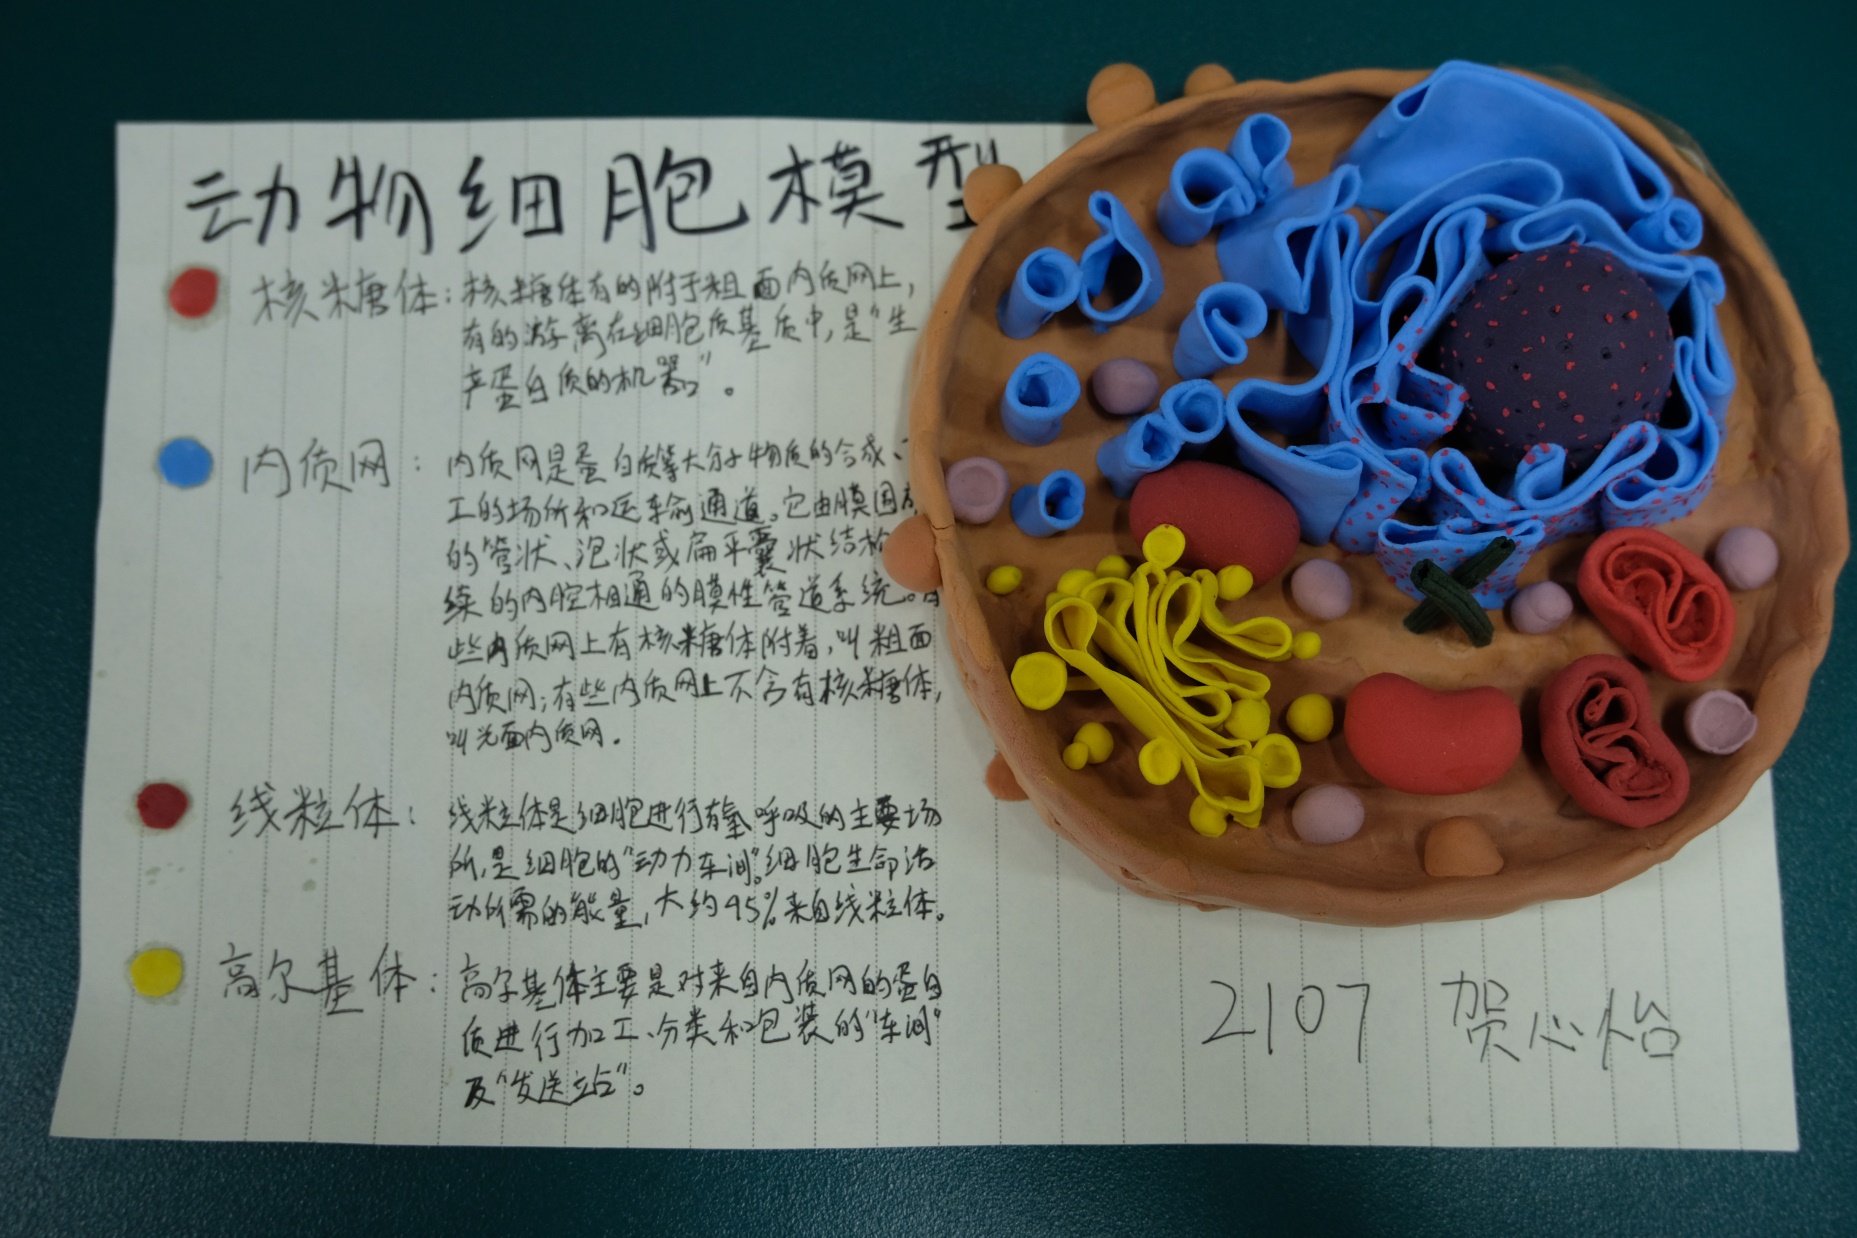 动物细胞模型
核糖体：核糖体有的附于粗面内质网上，
有的游离在细胞质基质中，是“生
产蛋白质的机器”。
内质网：内质网是蛋白质等大分子物质的合成、
工的场所和运输通道。它由膜围成
的管状、泡状或扁平囊状结构
续的内腔相通的膜性管道系统。有
些内质网上有核糖体附着，叫粗面
内质网；有些内质网上不含有核糖体，
叫光面内质网。
线粒体：线粒体是细胞进行有氧呼吸的主要场
所，是细胞的“动力车间”。细胞生命活
动所需的能量，大约95%来自线粒体。
高尔基体：高尔基体主要是对来自内质网的蛋白
质进行加工、分类和包装的“车间”
及“发送站”。
2107 贺心怡